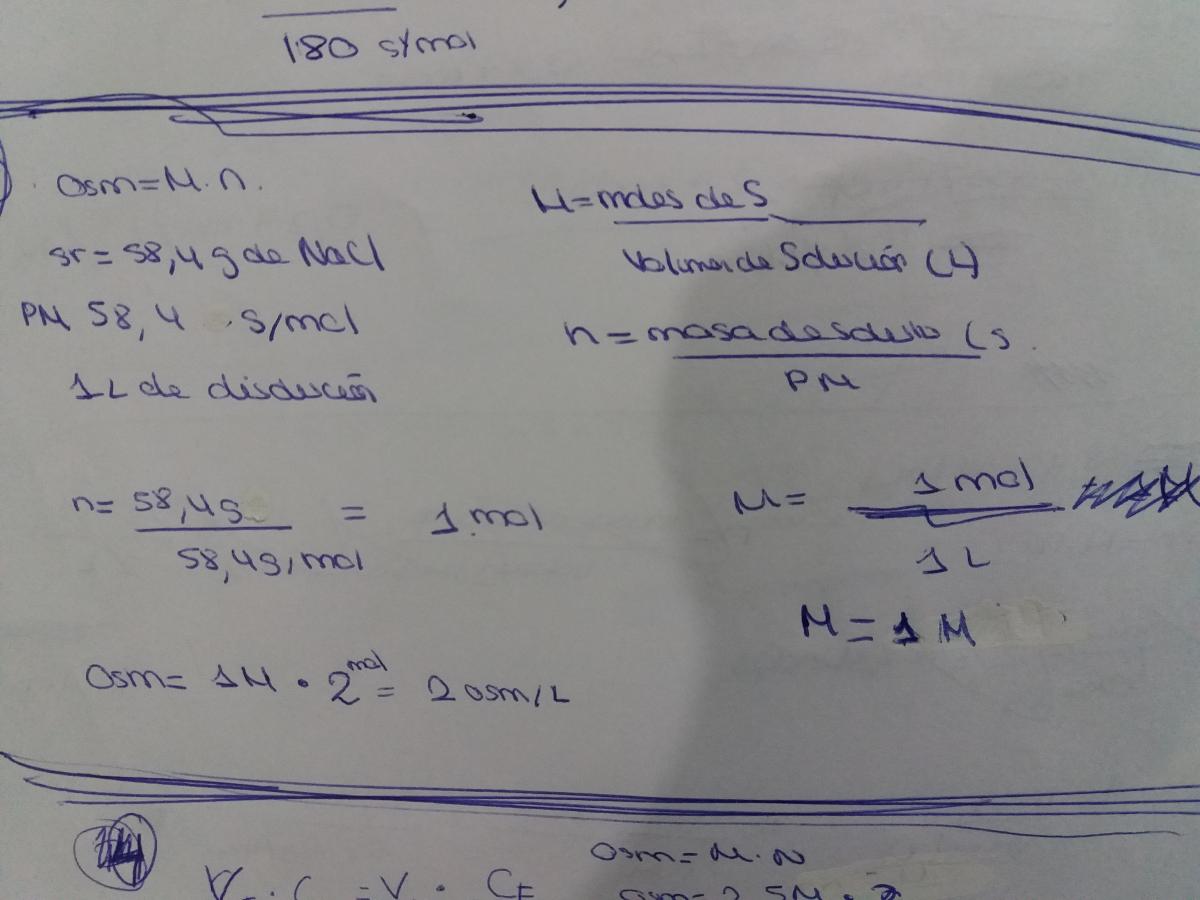 180 g/mol
Osm=M.n.
M=moles de S
Volumen de Solución (L)
gr=58,4 g de NaCl
PM 58,4 g/mol
n=masa de soluto (g
PM
1L de disolución
n=58,4g = 1 mol
58,4g/mol
M= 1 mol
1 L
M=1 M
Osm= 1M • 2 mol = 2 osm/L
14
Osm=M.N
V . C = V • CF
osm=2,5M •